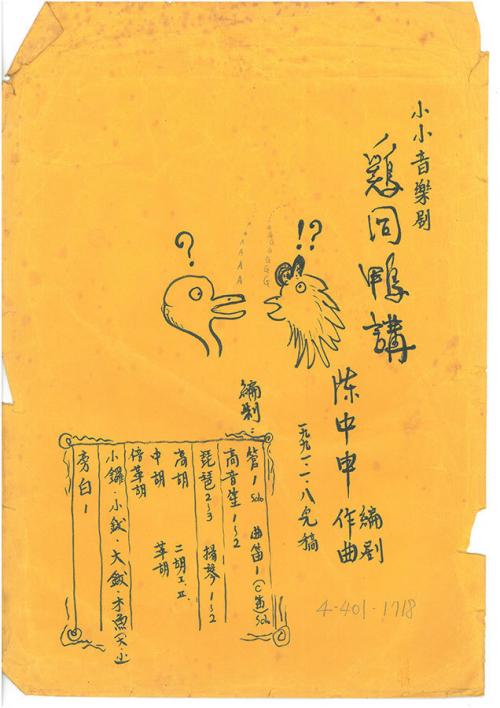 小小音樂劇
鷄同鴨講
陳中申 編劇 作曲
一九九一.一.八完稿
?
!?
A A A A A
G G G G G
編制：
管1 Solo 曲笛1(C笛) Solo
高音笙1~2
琵琶2~3 揚琴1~2
高胡 二胡I、II
中胡 革胡
倍革胡
小鑼·小鈸·大鈸·木魚(大·小)
旁白1
4-401-1718